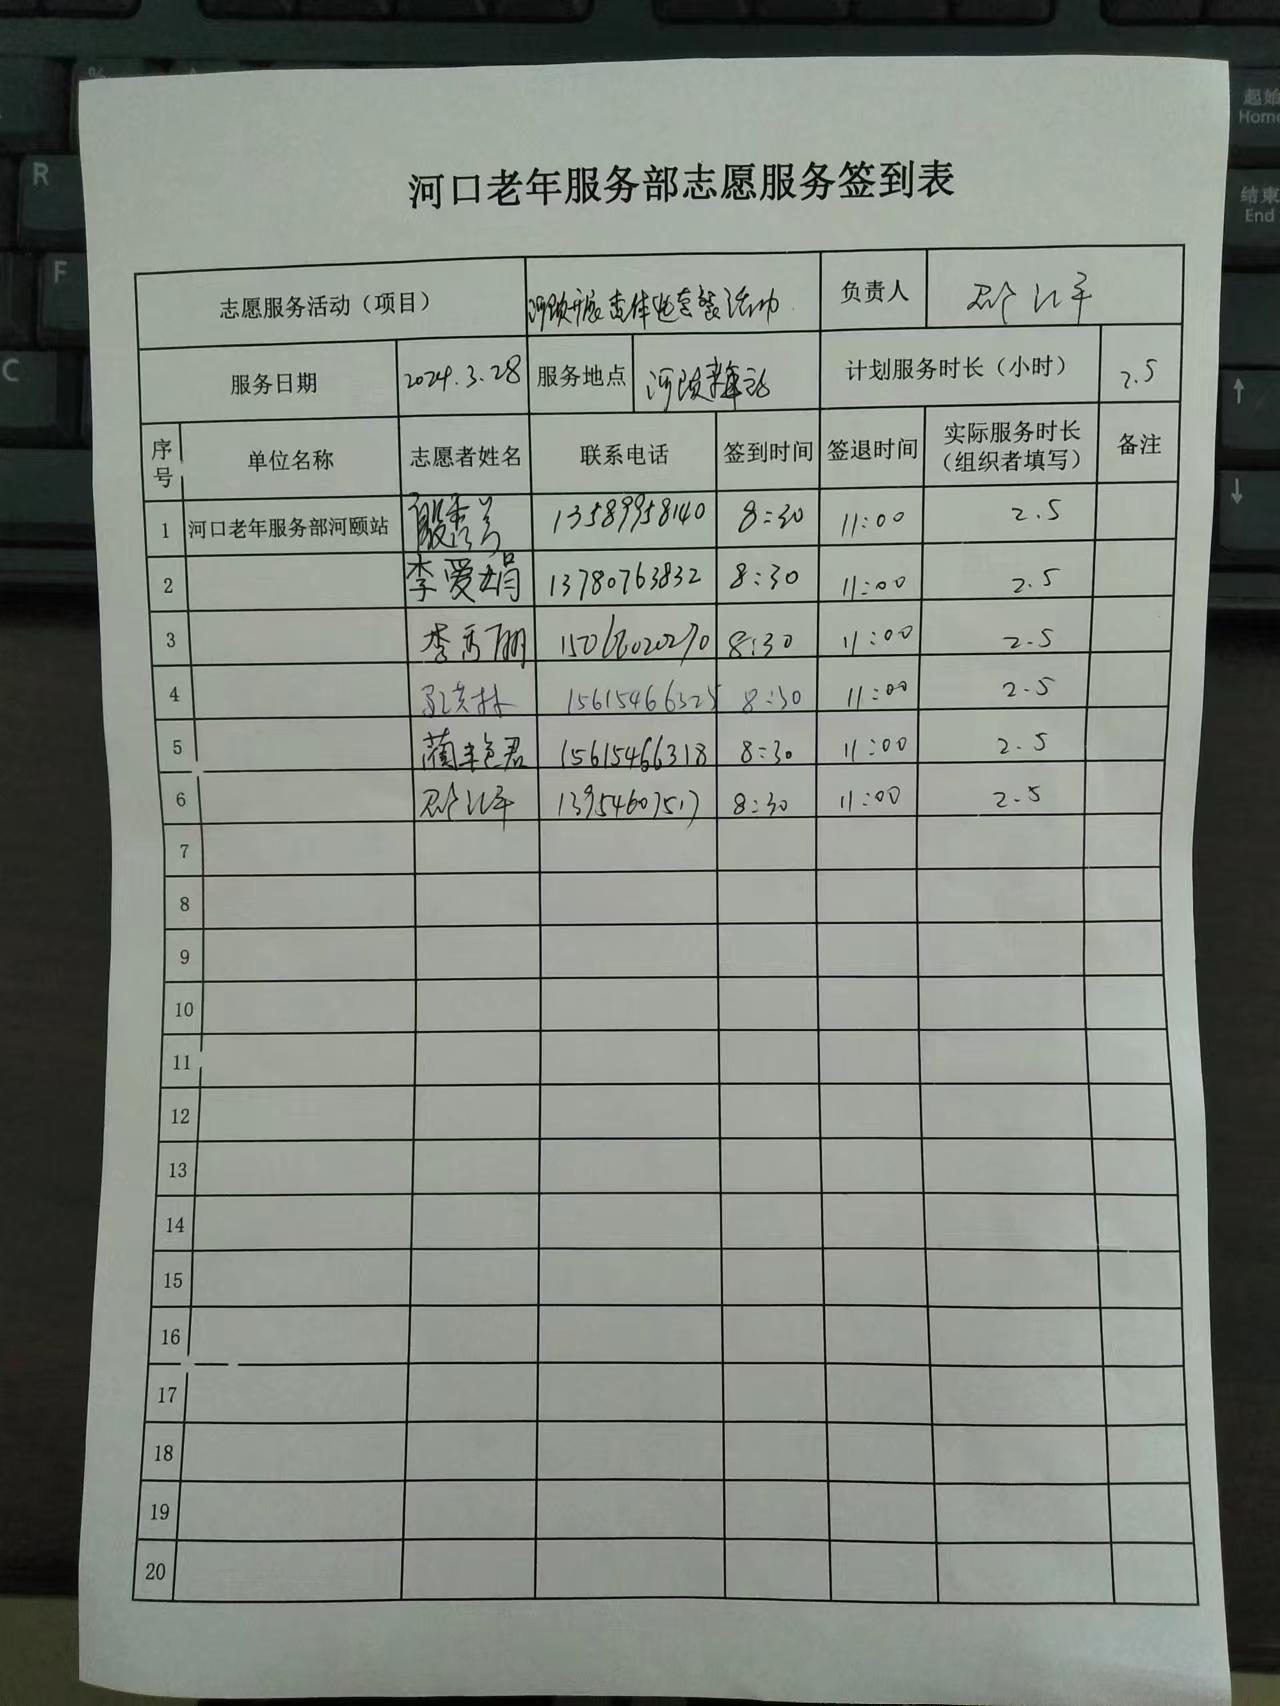 R
F
C
起始
Home
结束
End
↑
↓
河口老年服务部志愿服务签到表
志愿服务活动（项目） 活动 负责人
服务日期 2024.3.28 服务地点 计划服务时长（小时） 2.5
序号 单位名称 志愿者姓名 联系电话 签到时间 签退时间 实际服务时长（组织者填写） 备注
1 河口老年服务部河颐站 13589958140 8:30 11:00 2.5
2 李爱娟 13780763832 8:30 11:00 2.5
3 李秀丽 8:30 11:00 2.5
4 15615466325 8:30 11:00 2.5
5 蔺丰艳君 15615466318 8:30 11:00 2.5
6 13954607517 8:30 11:00 2.5
7
8
9
10
11
12
13
14
15
16
17
18
19
20